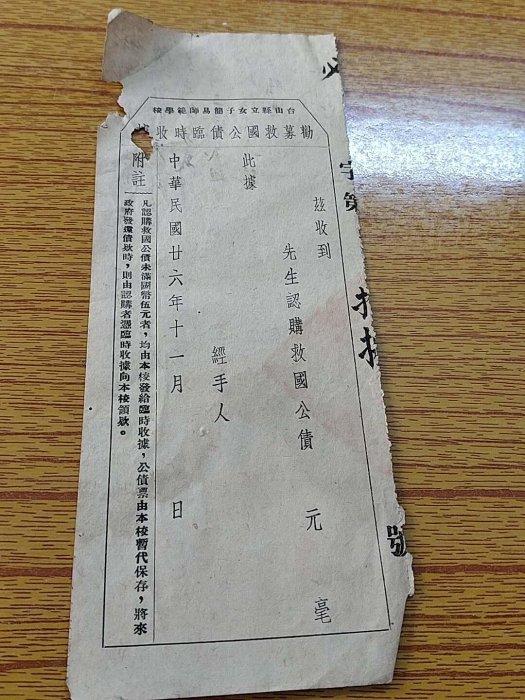 台山縣立女子簡易師範學校
勸募救國公債臨時收
字第
號
茲收到
先生認購救國公債 元 毫
此據
經手人
中華民國廿六年十一月 日
附註
凡認購救國公債未滿國幣伍元者，均由本校發給臨時收據，公債票由本校暫代保存，將來
政府發還債欵時，則由認購者憑臨時收據向本校領欵。